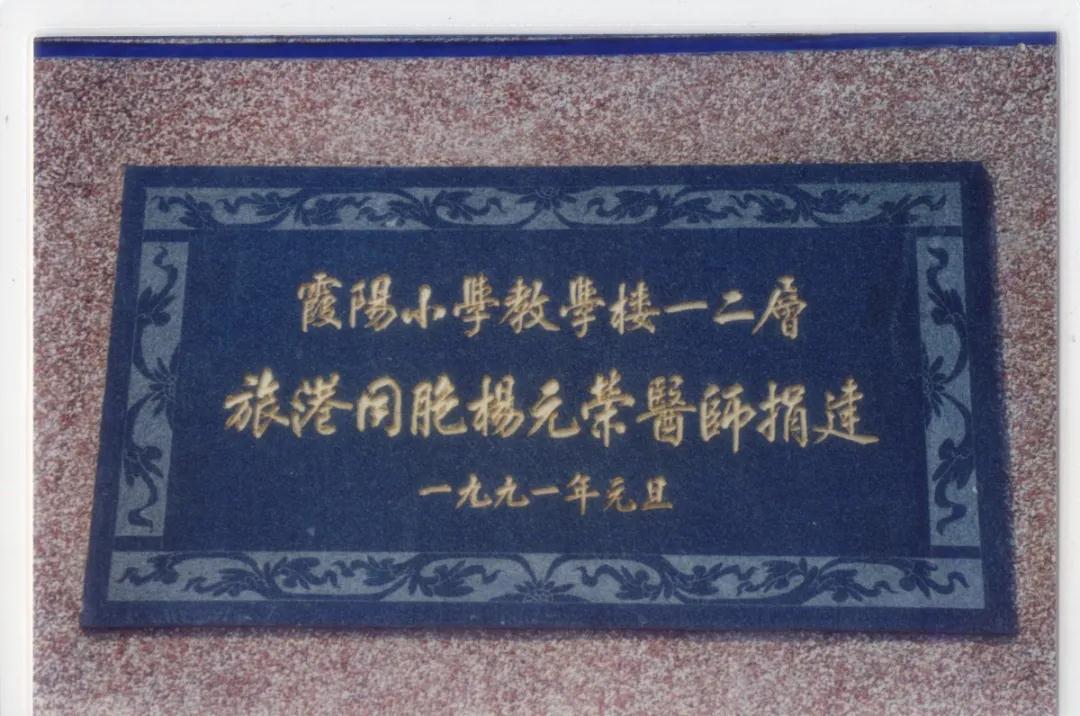 霞陽小學教學楼一二層
旅港同胞楊元榮醫師捐建
一九九一年元旦